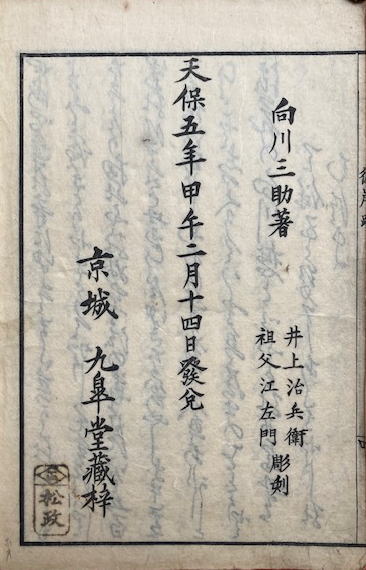 向川三助著
井上治兵衛
祖父江左門
彫刻
天保五年甲午二月十四日發兌
京城 九皐堂藏梓
松政